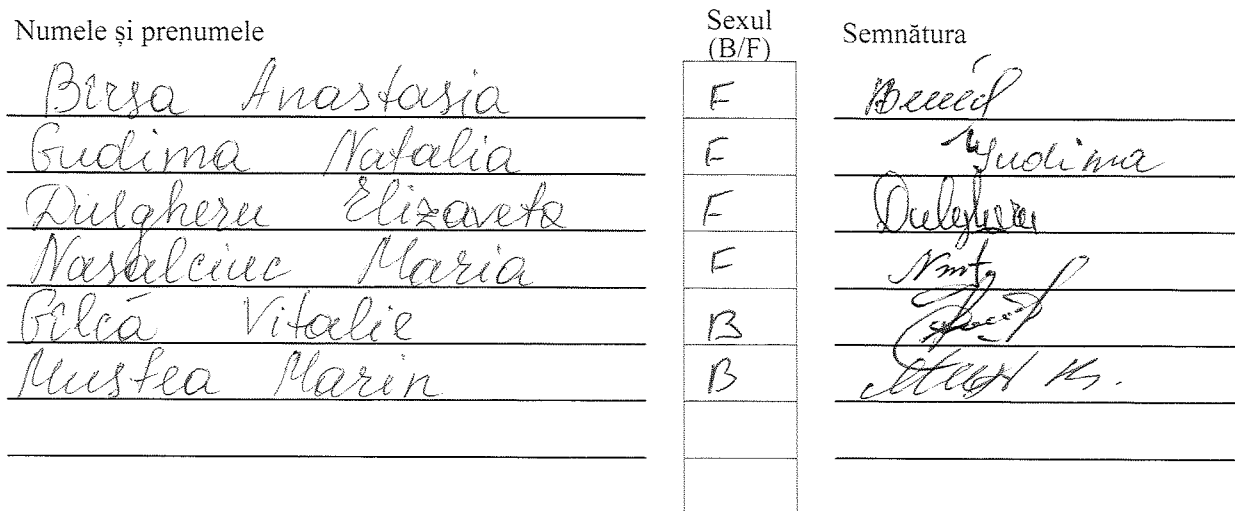 Numele și prenumele Sexul (B/F) Semnătura
Bîrsa Anastasia F
Gudima Natalia F Gudima
Dulgheru Elizaveta F Dulgheru
Nasalciuc Maria F
Gîlcă Vitalie B
Mustea Marin B